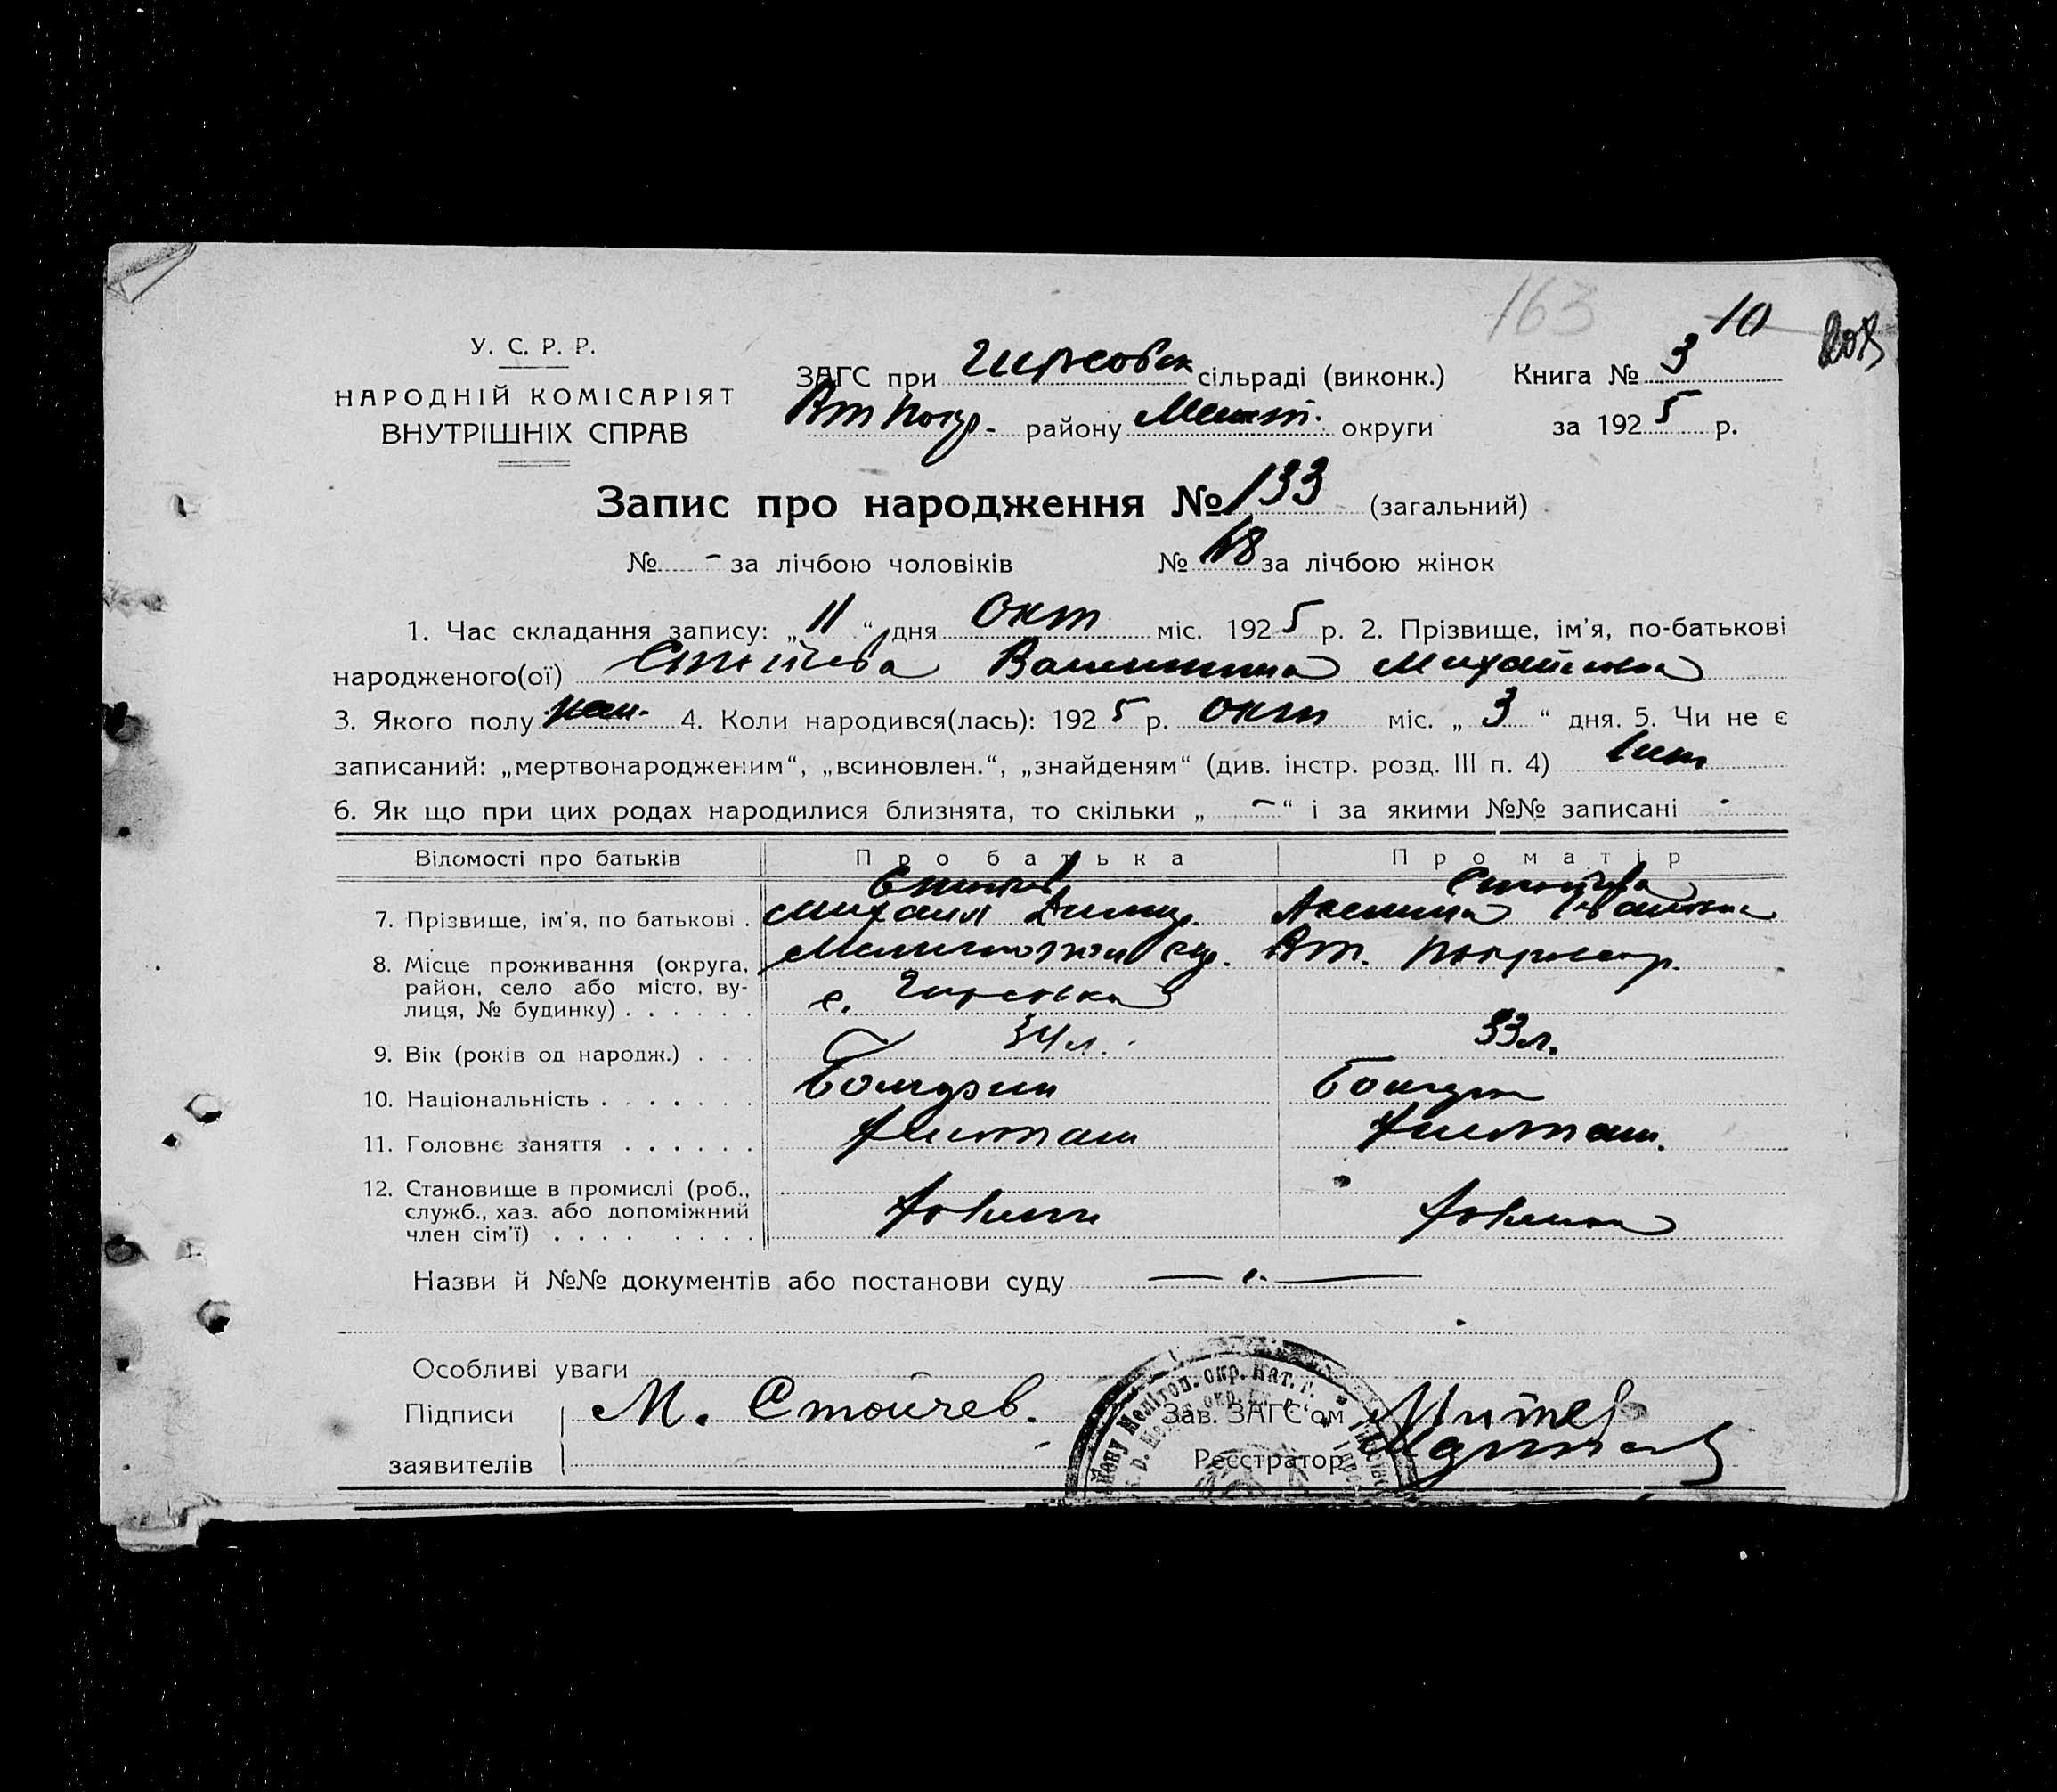 163
10
У. С. Р. Р.
НАРОДНІЙ КОМІСАРІЯТ
ВНУТРІШНІХ СПРАВ
ЗАГС при Гирсовск сільраді (виконк.) Книга № 3
Вт Покр- району Мелит. округи за 1925 р.
Запис про народження № 133 (загальний)
№ - за лічбою чоловіків № 68 за лічбою жінок
1. Час складання запису: „11“ дня Окт міс. 1925 р. 2. Прізвище, ім’я, по-батькові
народженого(ої) Стойчева Валентина Михайловна
3. Якого полу жен. 4. Коли народився(лась): 1925 р. Окт міс. „3“ дня. 5. Чи не є
записаний: „мертвонародженим“, „всиновлен.“, „знайденям“ (див. інстр. розд. III п. 4) нет
6. Як що при цих родах народилися близнята, то скільки „-“ і за якими №№ записані -
Відомості про батьків Про батька Про матір
Стойчев Стойчева
7. Прізвище, ім’я, по батькові . Михаил Димит. Ивановна
8. Місце проживання (округа, Мелитопол окр. Вт. Покров р.
район, село або місто, ву-
лиця, № будинку) . . . . . . с. Гирсовка
9. Вік (років од народж.) . . . 34 л. 33 л.
10. Національність . . . . . . . Болгарин Болгар
11. Головнє заняття . . . . . . Хлебопаш Хлебопаш.
12. Становище в промислі (роб.,
служб., хаз. або допоміжний Хозяин Хозяйка
член сім’ї) . . . . . . . .
Назви й №№ документів або постанови суду
Особливі уваги
Підписи М. Стойчев. Зав. ЗАГС’ом Митев
заявителів Реєстратор